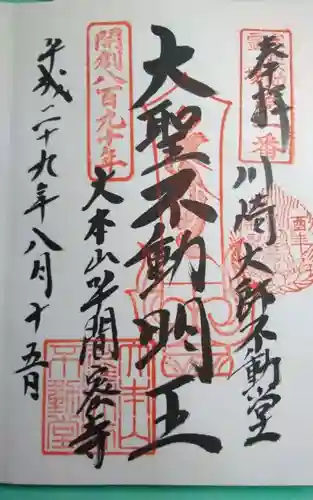 奉拝
川崎大師不動堂
大聖不動明王
開創八百九十年
大本山平間寺
平成二十九年八月十五日
酉年